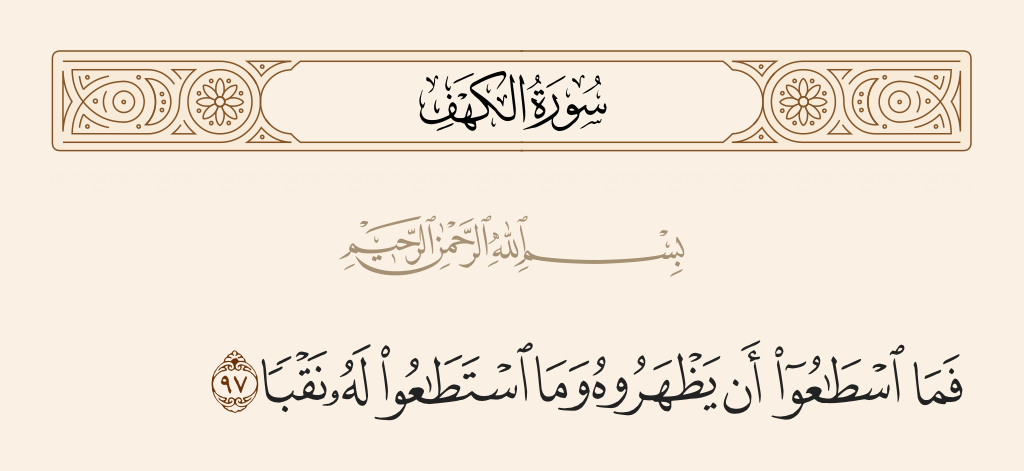 سُورَةُ الكَهْفِ
بِسْمِ ٱللَّهِ ٱلرَّحْمَٰنِ ٱلرَّحِيمِ
فَمَا ٱسْطَٰعُوٓا۟ أَن يَظْهَرُوهُ وَمَا ٱسْتَطَٰعُوا۟ لَهُۥ نَقْبًا ٩٧